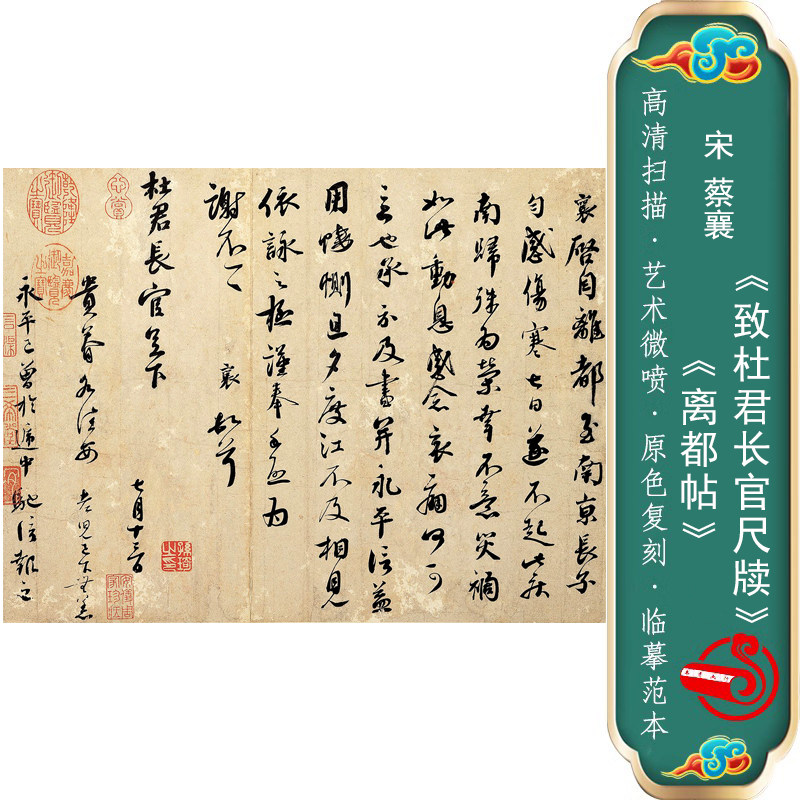 襄啓自離都至南京長子
匀感傷寒七日遂不起此疾
南歸殊爲榮幸不意災禍
如此動息感念哀痛何可
言也承示及書并永平信益
用悽惻旦夕度江不及相見
依詠之極謹奉手啓爲
謝不一一
襄頓首
杜君長官足下
七月十三日
貴眷各佳安老兒已下無恙
永平已曾於遞中馳信報之
宋 蔡襄
《致杜君长官尺牍》
《离都帖》
高清扫描·艺术微喷·原色复刻·临摹范本